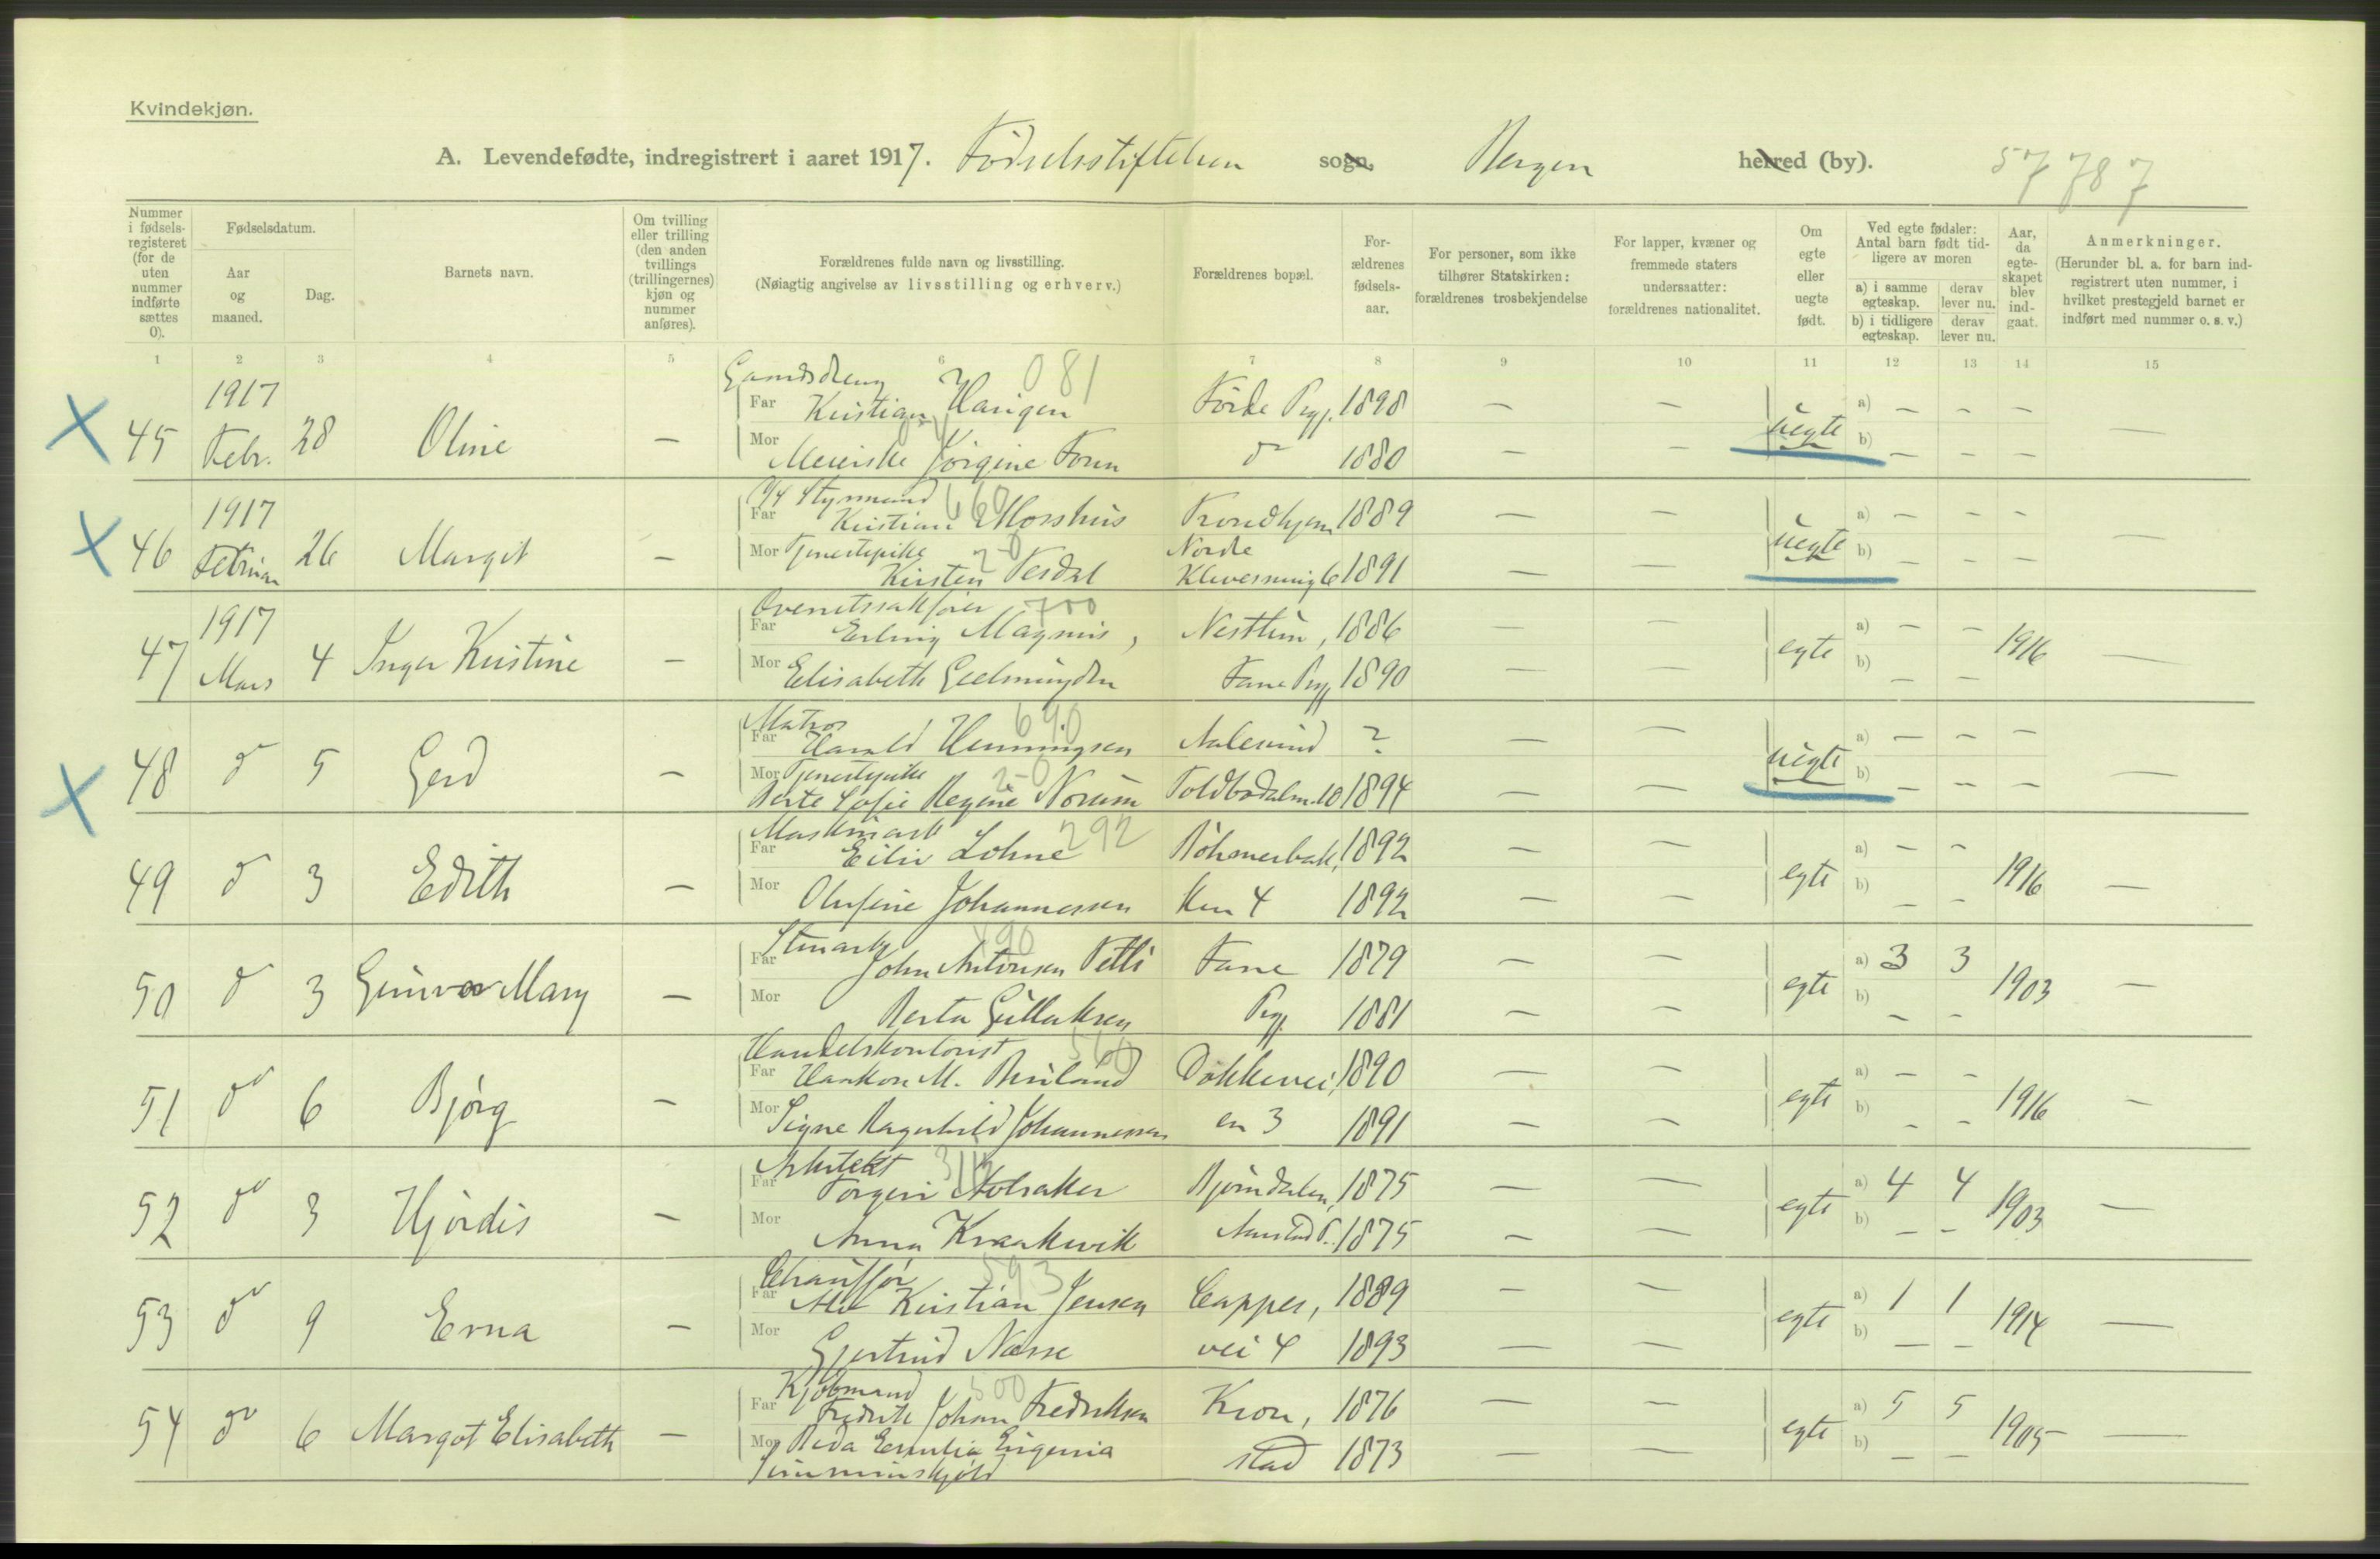 Kvindekjøn.
A. Levendefødte, indregistrert i aaret 1917. Fødselsstiftelsen sogn, Bergen herred (by). 57 787
Nummer i fødsels-registeret (for de uten nummer indførte sættes 0).
Fødselsdatum.
Aar og maaned.
Dag.
Barnets navn.
Om tvilling eller trilling (den anden tvillings (trillingernes) kjøn og nummer anføres).
Forældrenes fulde navn og livsstilling.
(Nøiagtig angivelse av livsstilling og erhverv.)
Forældrenes bopæl.
For-ældrenes fødsels-aar.
For personer, som ikke tilhører Statskirken: forældrenes trosbekjendelse
For lapper, kvæner og fremmede staters undersaatter: forældrenes nationalitet.
Om egte eller uegte født.
Ved egte fødsler: Antal barn født tid-ligere av moren
a) i samme egteskap. derav lever nu.
b) i tidligere egteskap. derav lever nu.
Aar, da egte-skapet blev ind-gaat.
Anmerkninger.
(Herunder bl. a. for barn ind-registrert uten nummer, i hvilket prestegjeld barnet er indført med nummer o. s. v.)
1 2 3 4 5 6 7 8 9 10 11 12 13 14 15
081
1917 Far Kristian Førde Pgj. 1898 — — a) — — —
45 Febr. 28 Oline — uegte —
Mor Jørgine do 1880 — — b) — — —
Styrmand 660
1917 Far Kristian Morshus Trondhjem 1889 — — a) — — —
46 Februar 26 Margit — uegte —
Mor Tjenestepike 20 Kirsten Tesdal Nordre 1891 — — b) — — —
Overretssakfører 700
1917 Far Erling Magnus, Nesttun, 1886 — — a) — —
47 Mars 4 Inger Kristine — egte 1916 —
Mor Elisabeth Geelmuyden Fane Pgj 1890 — — b) — —
Matros 690
Far Harald Henningsen Aalesund ? — — a) — — —
48 do 5 Gerd — uegte —
Mor Tjenestepike 20
Berte Sofie Regine Norum Toldbodalm. 10 1894 — — b) — — —
292
Far Eiliv Lohne 1892 — — a) — —
49 do 3 Edith — egte 1916 —
Mor Olufine Johannessen ken 4 1892 — — b) — —
490
Far John Antonsen Fane 1879 — — a) 3 3
50 do 3 Gunvor Mary — egte 1903 —
Mor Berta Gullaksen Pgj 1881 — — b) — —
Handelskontorist 560
Far Haakon M. Dokkevei, 1890 — — a) — —
51 do 6 Bjørg — egte 1916 —
Mor Signe Ragnhild Johannessen en 3 1891 — — b) — —
Arkitekt
Far Torgeir Alvsaker Bjørndalen, 1875 — — a) 4 4
52 do 3 Hjørdis — egte 1903 —
Mor Anna Kraakevik 1875 — — b) — —
Chauffør 593
Far Kristian Jensen Cappes, 1889 — — a) 1 1
53 do 9 Erna — egte 1914 —
Mor Gjertrud Næsse vei 4 1893 — — b) — —
Kjøbmand 500
Far Fredrik Johan Fredriksen Kron, 1876 — — a) 5 5
54 do 6 Margot Elisabeth — egte 1905 —
Mor Emilia Eugenia stad 1873 — — b) — —